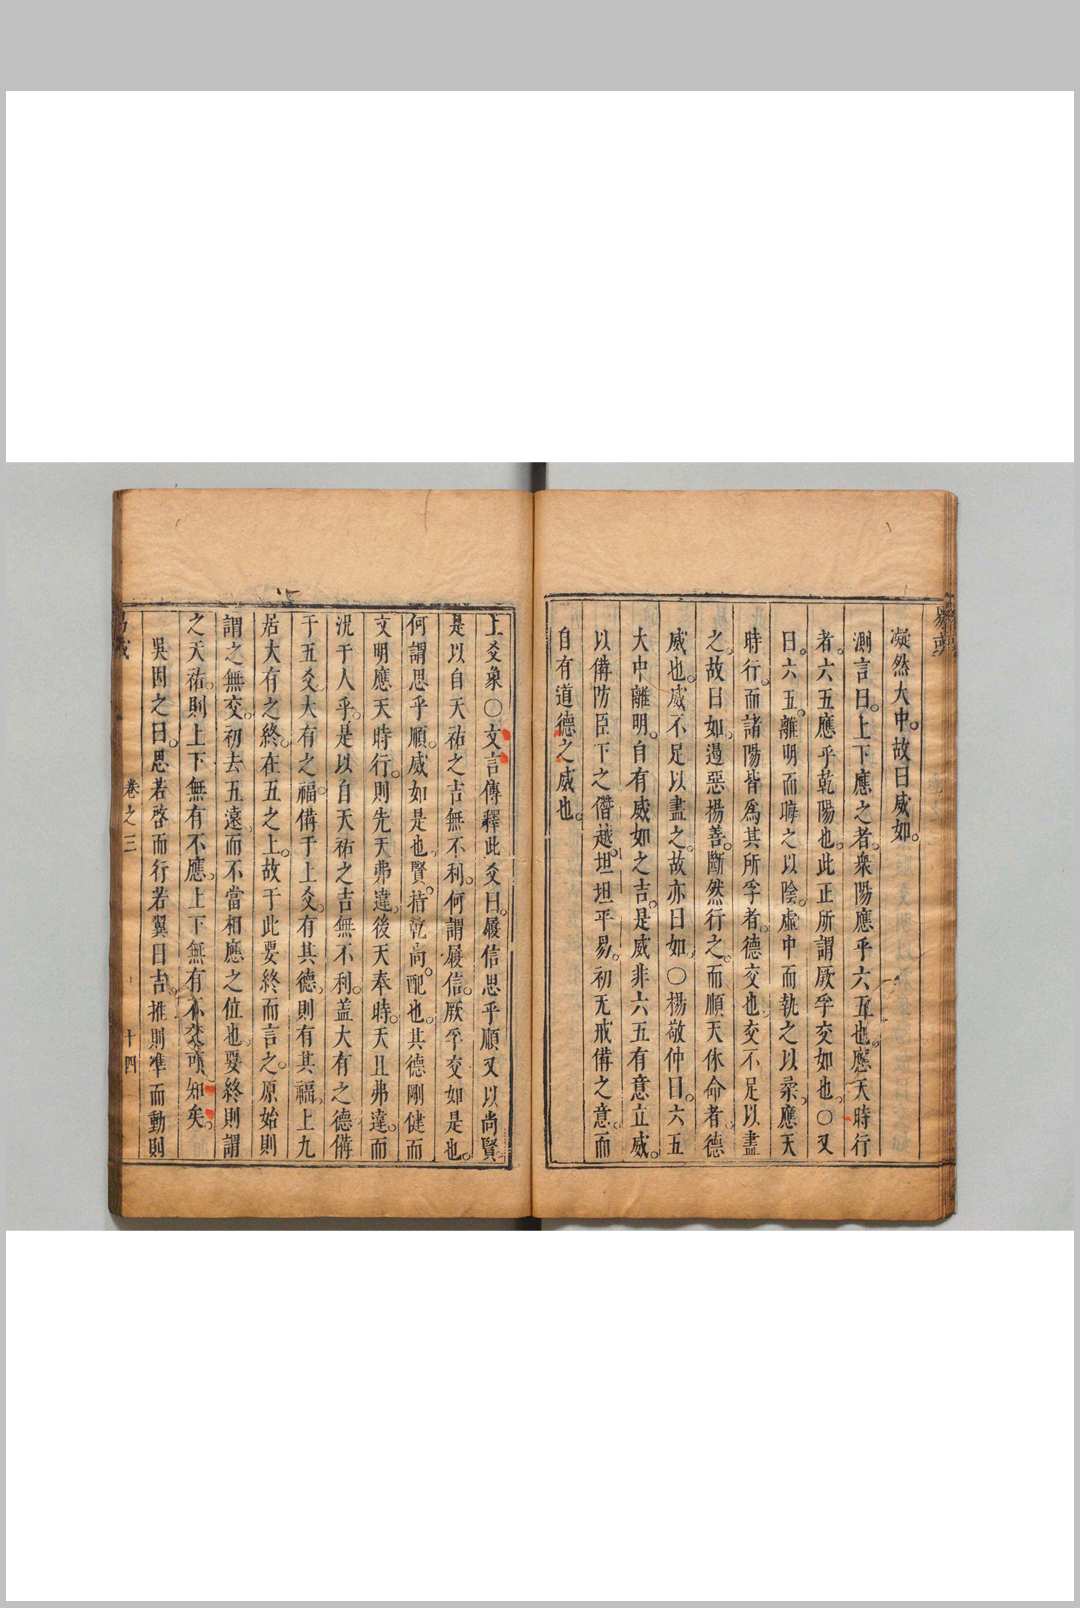 凝然大中。故曰威如。
測言曰。上下應之者。衆陽應乎六五也。應天時行
者。六五應乎乾陽也。此正所謂厥孚交如也。○又
曰。六五。離明而晦之以陰。虛中而執之以柔。應天
時行。而諸陽皆爲其所孚者。德交也。交不足以盡
之。故曰如。遏惡揚善。斷然行之。而順天休命者。德
威也。威不足以盡之。故亦曰如。○楊敬仲曰。六五
大中離明。自有威如之吉。是威非六五有意立威。
以備防臣下之僭越。坦坦平易。初无戒備之意。而
自有道德之威也。
上爻象○文言傳釋此爻曰。履信思乎順又以尚賢
是以自天祐之吉無不利。何謂履信。厥孚交如是也。
何謂思乎順。威如是也。賢。指乾。尚。配也。其德剛健而
文明應天時行。則先天弗違。後天奉時。天且弗違。而
況于人乎。是以自天祐之吉無不利。蓋大有之德備
于五爻。大有之福。備于上爻。有其德。則有其福。上九
居大有之終。在五之上。故于此要終而言之。原始則
謂之無交。初去五遠。而不當相應之位也。要終則謂
之天祐。則上下無有不應。上下無有不交可知矣。
吳因之曰。思若啓而行若翼曰吉。推則準而動則
卷之三
十四